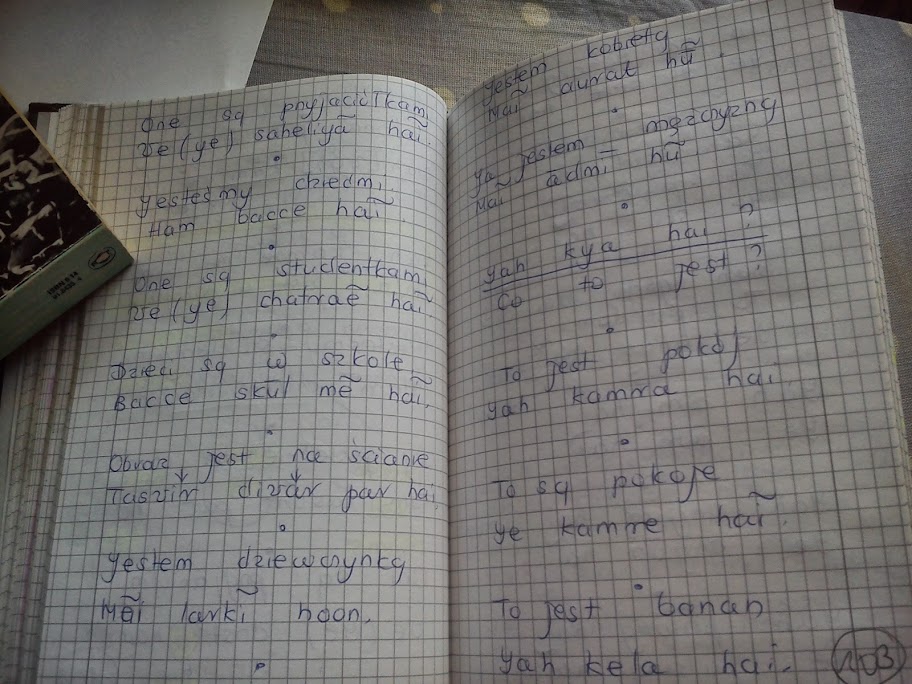 One są przyjaciółkami
Ve (ye) saheliyã haĩ.
Yesteśmy dziećmi.
Ham bacce haĩ.
One są studentkami
Ve (ye) chatraẽ haĩ
Dzieci są w szkole
Bacce skul mẽ haĩ.
Obraz jest na ścianie
Tasvir divar par hai.
Yestem dziewczynką
Mẽi larkĩ hoon.
Yestem kobietą
Maĩ aurat hũ.
Ya jestem – mężczyzną
Maĩ admi hũ
Yah kya hai?
Co to jest?
To jest pokój
Yah kamra hai.
To są pokoje
Ye kamre haĩ.
To jest banan
Yah kela hai.
203